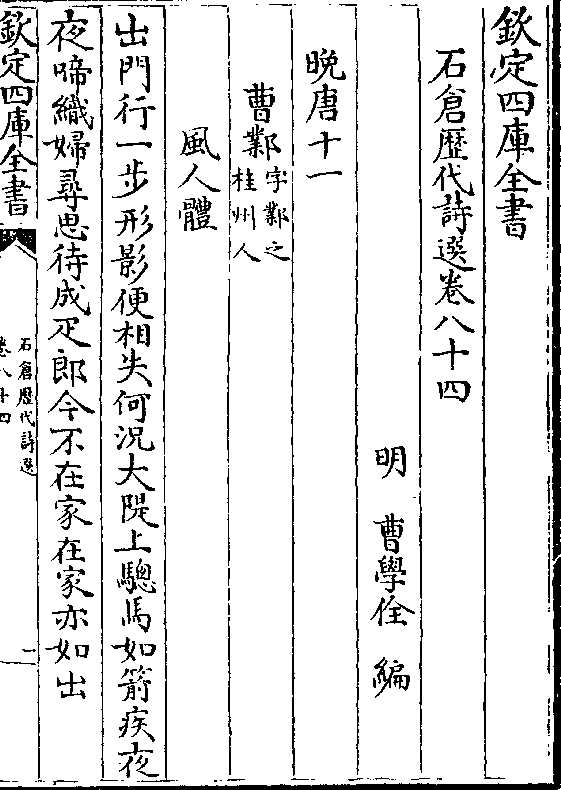 欽定四庫全書
石倉歴代詩選卷八十四
明 曹學佺 編
晚唐十一
曹鄴字鄴之
桂州人
風人體
出門行一步形影便相失何況大隄上驄馬如箭疾夜
夜啼織婦尋思待成疋郎今不在家在家亦如出
欽定四庫全書
石倉歴代詩選
卷八十四
一